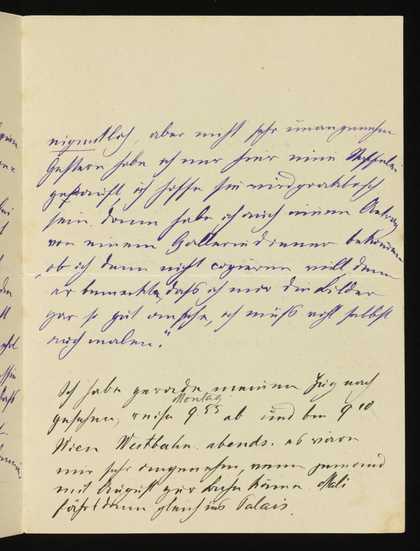 eigentlich, aber nicht sehr unangenehm
Gestern habe ich mir hier eine Staffelei
gekauft, ich hoffe sie wird praktisch
sein. Dann habe ich auch einen Antrag
von einem Galleriediener bekommen
„ob ich denn nicht copieren will denn
er bemerkte, daß ich mir die Bilder
gar so gut ansehe, ich muß wohl selbst
auch malen."
Ich habe gerade meinen Zug nach
gesehen, reise Montag 9 55 ab und bin 9 10
Wien Westbahn abends. es wäre
mir sehr angenehm, wenn jemand
mit August zur Bahn käme.
fährt dann gleich ins Palais.